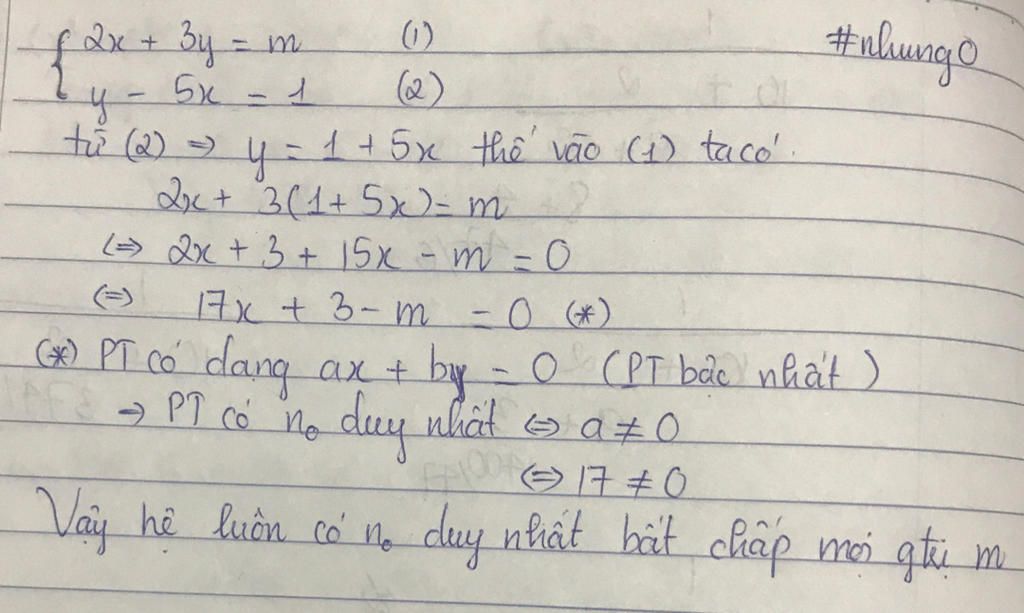 { 2x + 3y = m (1) #nhung0
y - 5x = 1 (2)
từ (2) ⇒ y = 1 + 5x thế vào (1) ta có.
2x + 3(1 + 5x) = m
⇔ 2x + 3 + 15x - m = 0
⇔ 17x + 3 - m = 0 (*)
(*) PT có dạng ax + by = 0 (PT bậc nhất)
→ PT có n₀ duy nhất ⇔ a ≠ 0
⇔ 17 ≠ 0
Vậy hệ luôn có n₀ duy nhất bất chấp mọi gtrị m